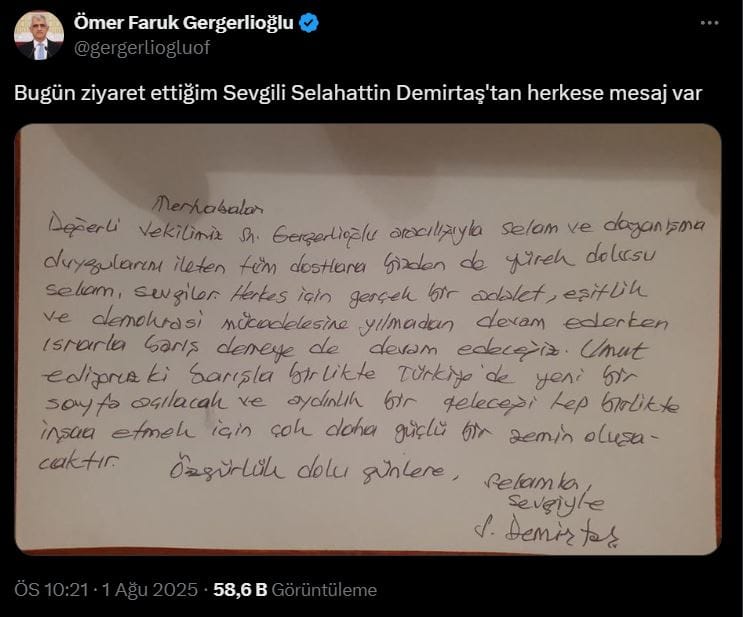 Ömer Faruk Gergerlioğlu
@gergerliogluof
Bugün ziyaret ettiğim Sevgili Selahattin Demirtaş'tan herkese mesaj var
Merhabalar
Değerli Vekilimiz Sn. Gergerlioğlu aracılığıyla selam ve dayanışma
duygularını ileten tüm dostlara bizden de yürek dolusu
selam, sevgiler. Herkes için gerçek bir adalet, eşitlik
ve demokrasi mücadelesine yılmadan devam ederken
ısrarla barış demeye de devam edeceğiz. Umut
ediyoruz ki barışla birlikte Türkiye'de yeni bir
sayfa açılacak ve aydınlık bir geleceği hep birlikte
inşaa etmek için çok daha güçlü bir zemin oluşa-
caktır.
Özgürlük dolu günlere,
Selamla,
Sevgiyle
S. Demirtaş
ÖS 10:21 · 1 Ağu 2025 · 58,6 B Görüntüleme